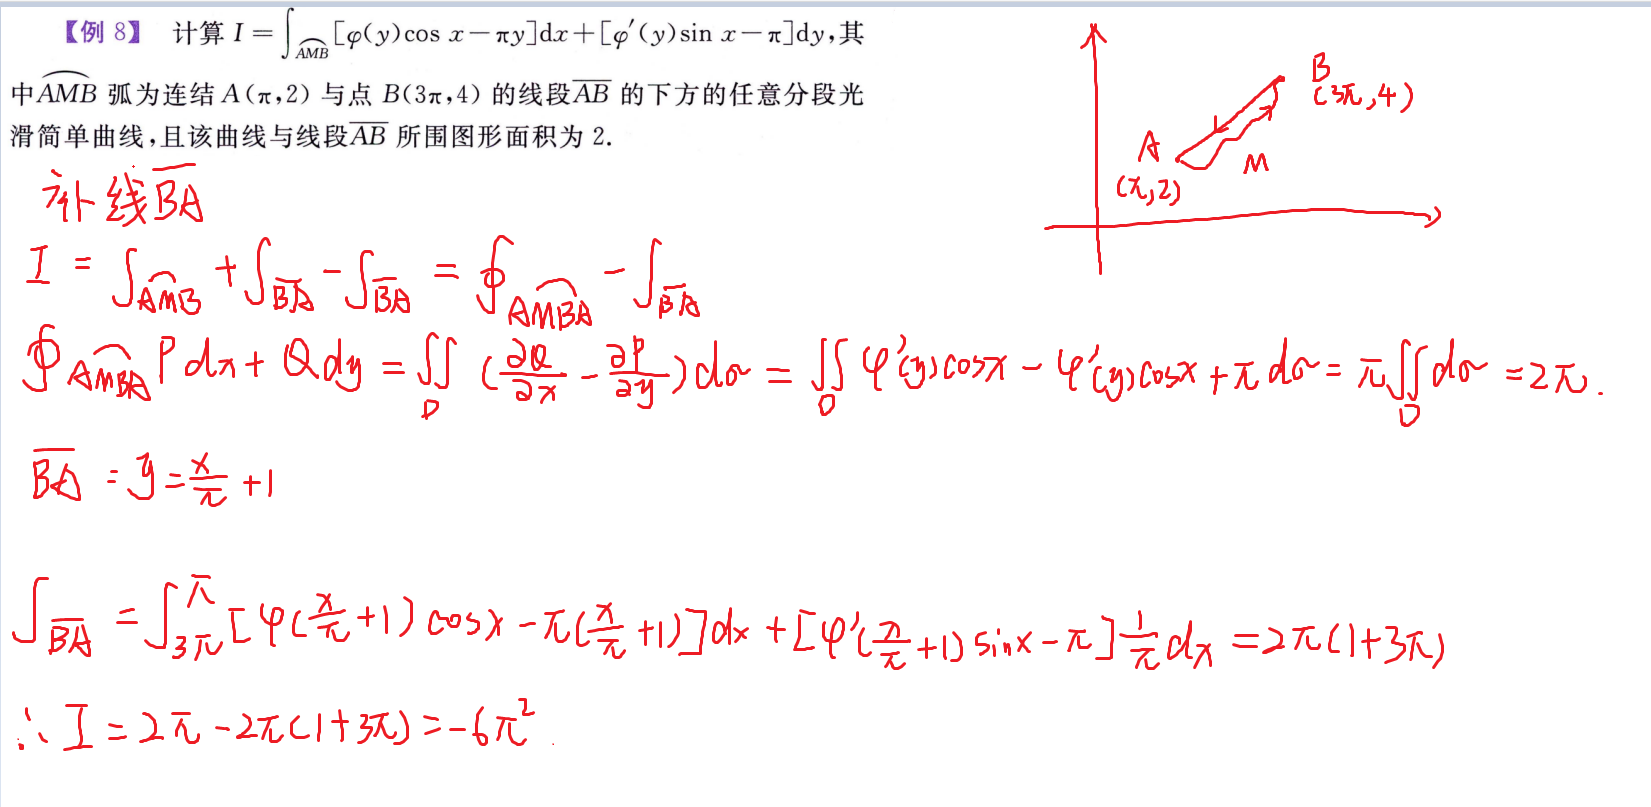 【例 8】 计算 I = ∫_{\overset{\frown}{AMB}} [φ(y)cos x − πy]dx + [φ′(y)sin x − π]dy,其
中\overset{\frown}{AMB} 弧为连结 A(π,2) 与点 B(3π,4) 的线段\overline{AB} 的下方的任意分段光
滑简单曲线,且该曲线与线段\overline{AB} 所围图形面积为 2.
B
(3π,4)
A
(π,2)
M
补线\overline{BA}
I = ∫_{\overset{\frown}{AMB}} + ∫_{\overline{BA}} − ∫_{\overline{BA}} = ∮_{\overset{\frown}{AMBA}} − ∫_{\overline{BA}}
∮_{\overset{\frown}{AMBA}} Pdx + Qdy = ∬_D (∂Q/∂x − ∂P/∂y)dσ = ∬_D φ′(y)cosx − φ′(y)cosx + π dσ = π∬_D dσ = 2π.
\overline{BA} : y = x/π + 1
∫_{\overline{BA}} = ∫_{3π}^{π} [φ(x/π + 1)cosx − π(x/π + 1)]dx + [φ′(x/π + 1)sinx − π] 1/π dx = 2π(1+3π)
∴ I = 2π − 2π(1+3π) = −6π².